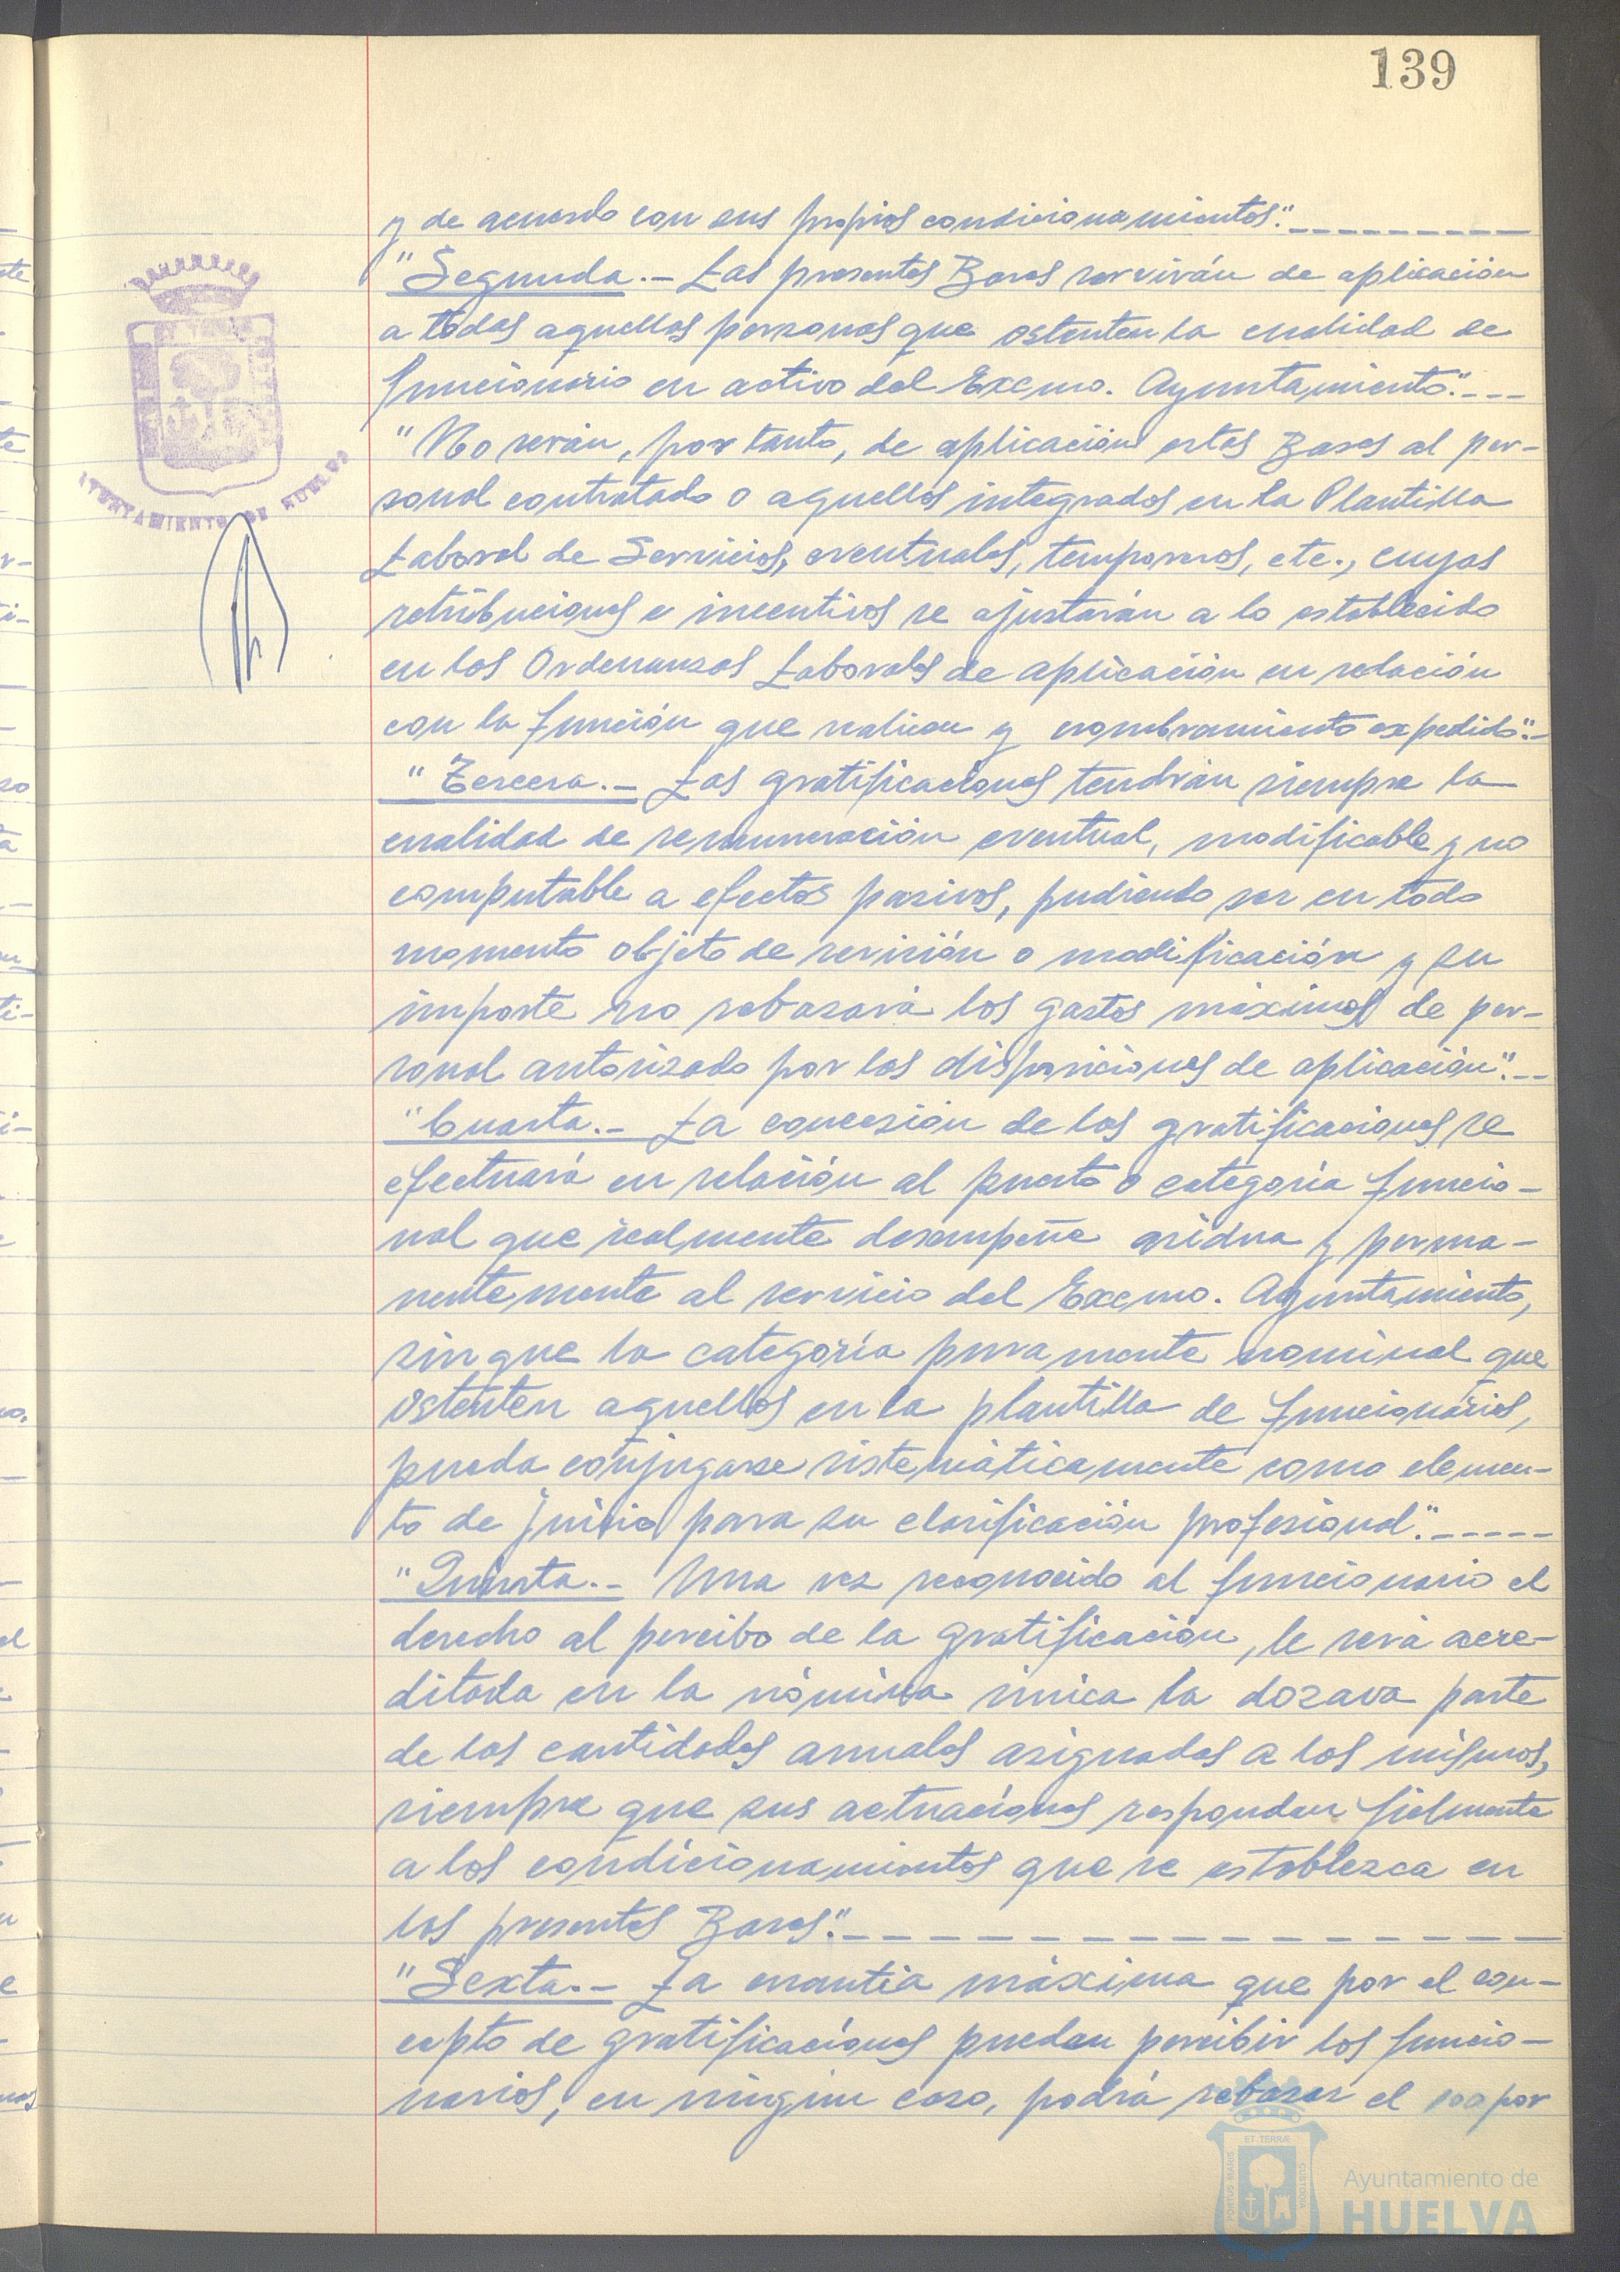 139
y de acuerdo con sus propios condicionamientos".---------
"Segunda.- Las presentes Bases servirán de aplicación
a todas aquellas personas que ostenten la cualidad de
funcionario en activo del Excmo. Ayuntamiento".---
"No serán, por tanto, de aplicación estas Bases al per-
sonal contratado o aquellos integrados en la Plantilla
Laboral de Servicios, eventuales, temporeros, etc., cuyas
retribuciones e incentivos se ajustarán a lo establecido
en las Ordenanzas Laborales de aplicación en relación
con la función que realicen y nombramiento expedido".-
"Tercera.- Las gratificaciones tendrán siempre la
cualidad de remuneración eventual, modificable y no
computable a efectos pasivos, pudiendo ser en todo
momento objeto de revisión o modificación y su
importe no rebasará los gastos máximos de per-
sonal autorizado por las disposiciones de aplicación".--
"Cuarta.- La concesión de las gratificaciones se
efectuará en relación al puesto o categoría funcio-
nal que realmente desempeñe asidua y perma-
nentemente al servicio del Excmo. Ayuntamiento,
sin que la categoría puramente nominal que
ostenten aquellos en la plantilla de funcionarios,
pueda conjugarse sistemáticamente como elemen-
to de juicio para su clasificación profesional".-----
"Quinta.- Una vez reconocido al funcionario el
derecho al percibo de la gratificación, le será acre-
ditada en la nómina única la dozava parte
de las cantidades anuales asignadas a los mismos,
siempre que sus actuaciones respondan fielmente
a los condicionamientos que se establezca en
las presentes Bases".----------------
"Sexta.- La cuantía máxima que por el con-
cepto de gratificaciones puedan percibir los funcio-
narios, en ningún caso, podrá rebasar el 100 por
AYUNTAMIENTO DE HUELVA
PORTUS MARIS ET TERRÆ CUSTODIA
Ayuntamiento de
HUELVA